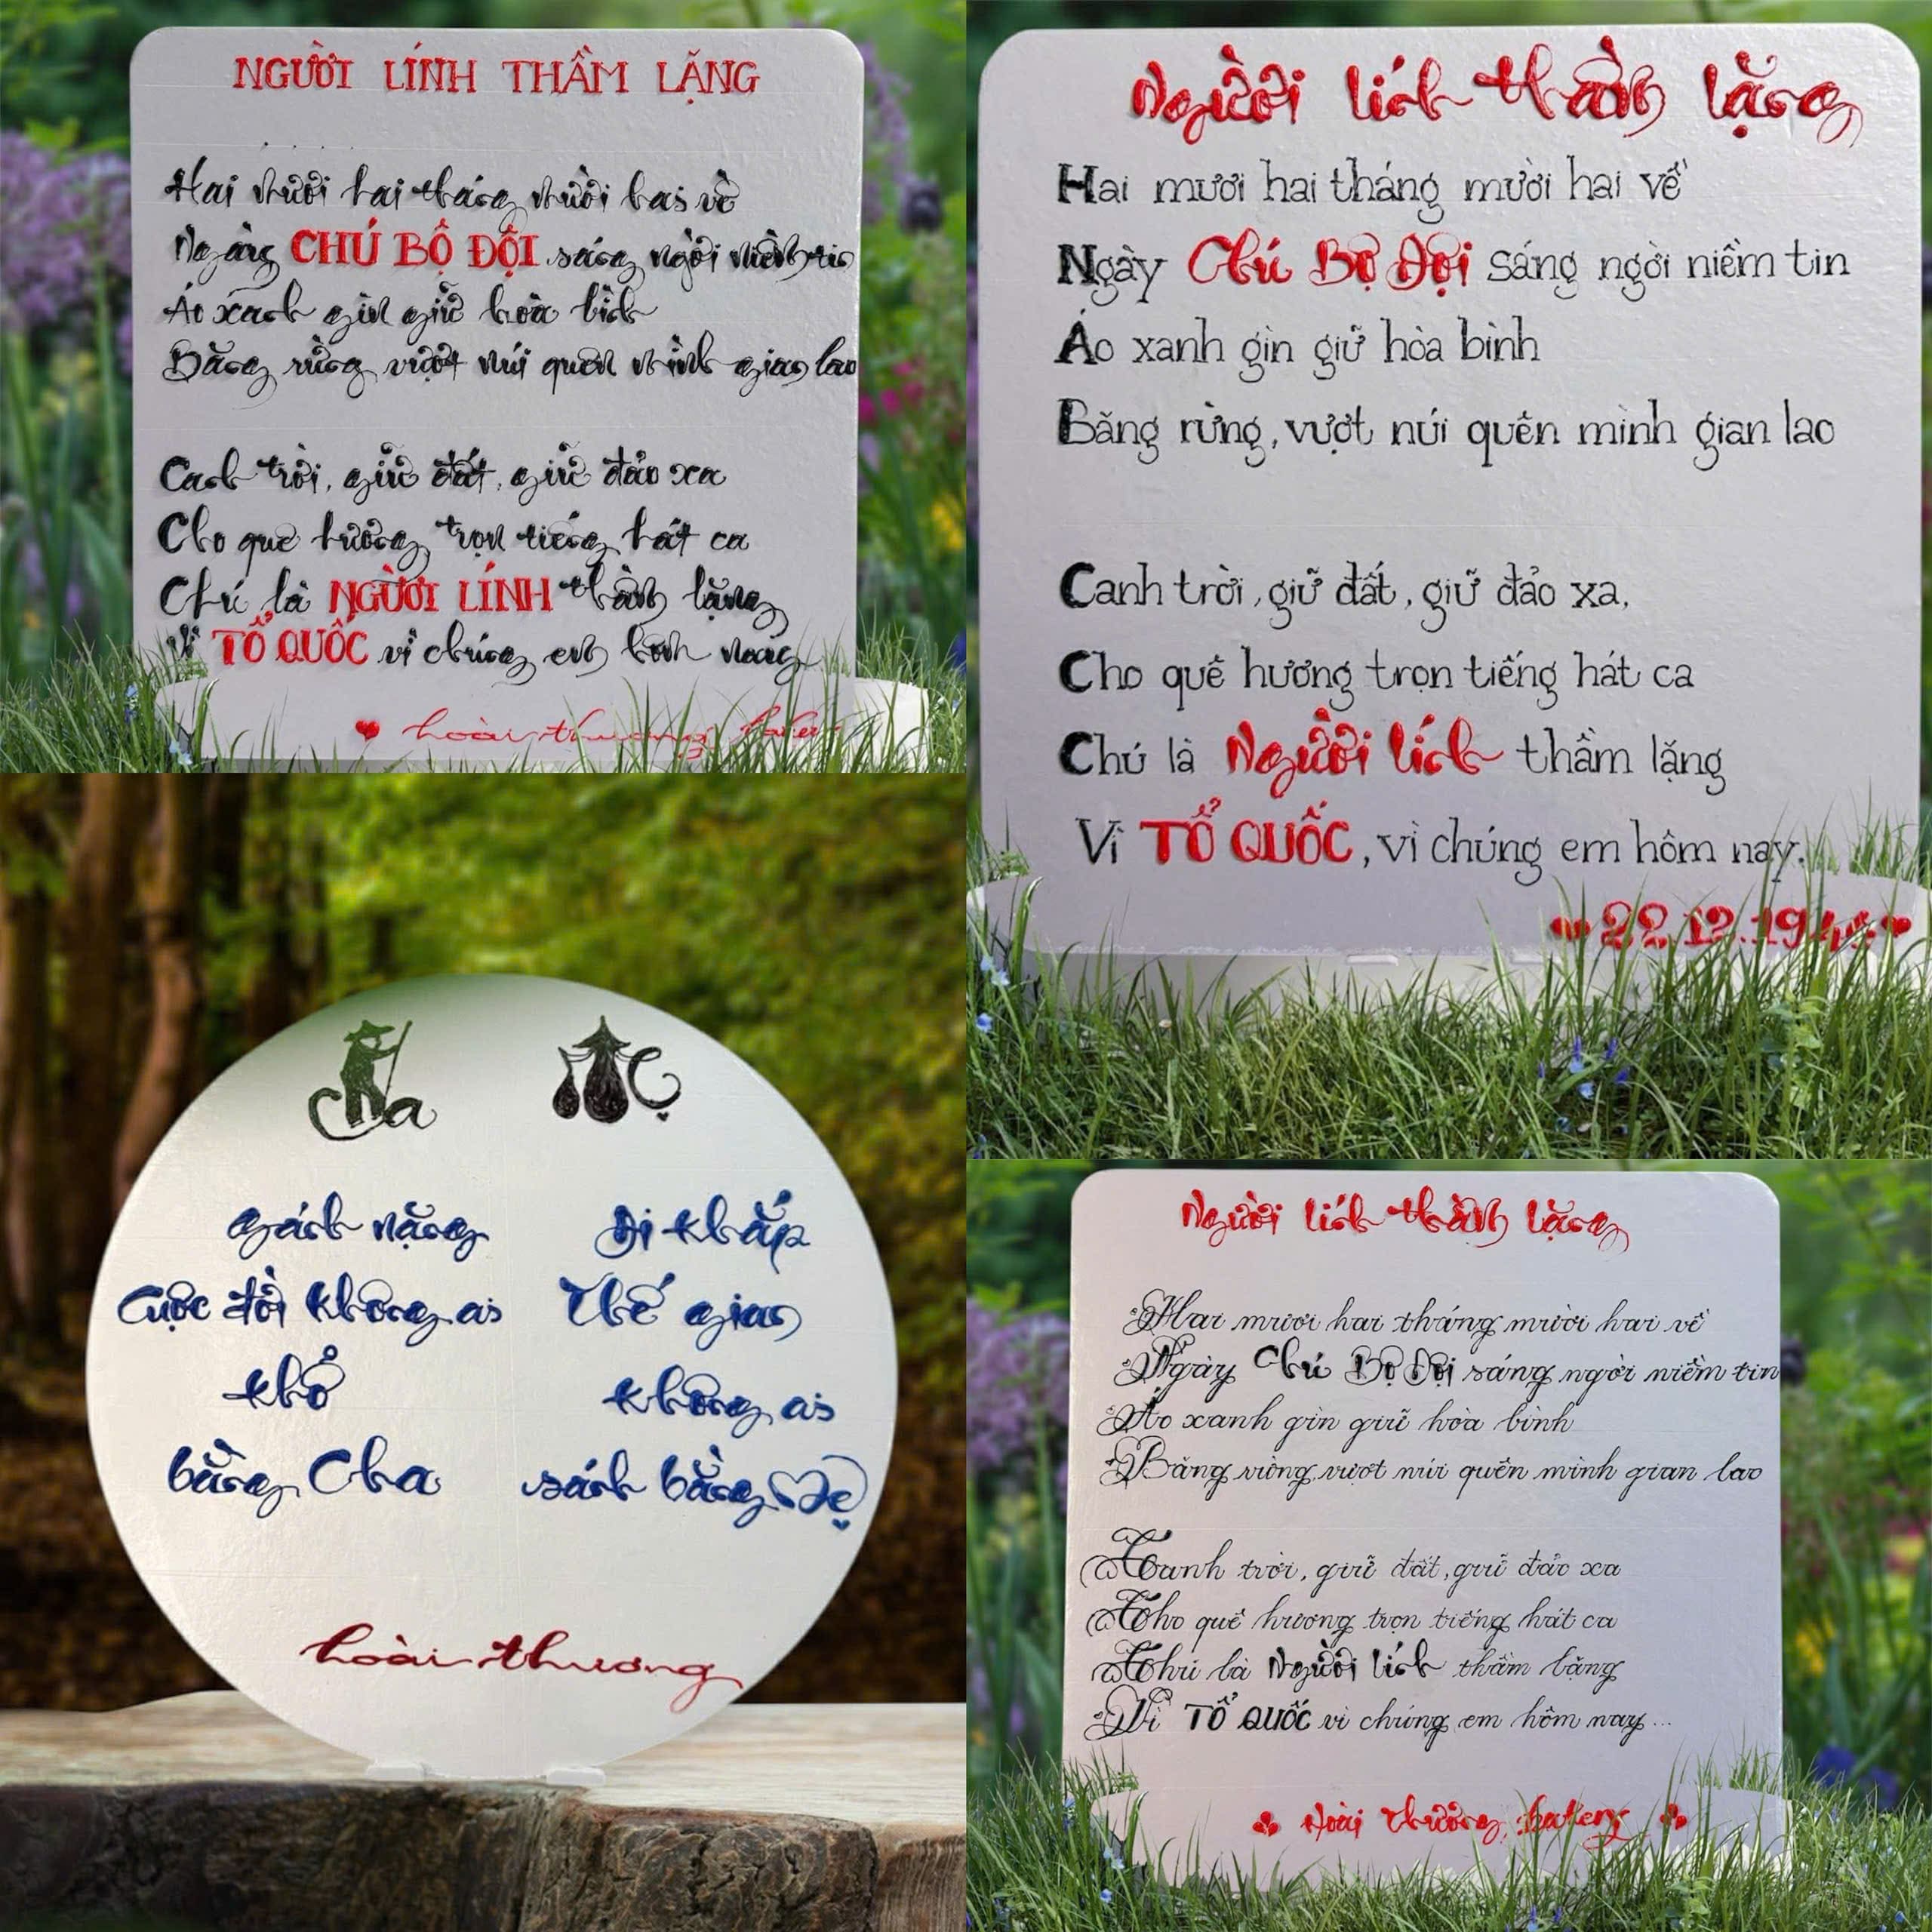 NGƯỜI LÍNH THẦM LẶNG
Hai mươi hai tháng mười hai về
Ngày CHÚ BỘ ĐỘI sáng ngời niềm tin
Áo xanh gìn giữ hòa bình
Băng rừng vượt núi quên mình gian lao
Canh trời, giữ đất, giữ đảo xa
Cho quê hương trọn tiếng hát ca
Chú là NGƯỜI LÍNH thầm lặng
Vì TỔ QUỐC vì chúng em hôm nay
hoài thương bakery
Người lính thầm lặng
Hai mươi hai tháng mười hai về
Ngày Chú Bộ Đội sáng ngời niềm tin
Áo xanh gìn giữ hòa bình
Băng rừng, vượt núi quên mình gian lao
Canh trời, giữ đất, giữ đảo xa,
Cho quê hương trọn tiếng hát ca
Chú là Người lính thầm lặng
Vì TỔ QUỐC, vì chúng em hôm nay.
22.12.1944
Cha
gánh nặng
Cuộc đời không ai
khổ
bằng Cha
Mẹ
Đi khắp
Thế gian
không ai
sánh bằng Mẹ
hoài thương
Người lính thầm lặng
Hai mươi hai tháng mười hai về
Ngày Chú Bộ Đội sáng ngời niềm tin
Áo xanh gìn giữ hòa bình
Băng rừng vượt núi quên mình gian lao
Canh trời, giữ đất, giữ đảo xa
Cho quê hương trọn tiếng hát ca
Chú là Người lính thầm lặng
Vì TỔ QUỐC vì chúng em hôm nay...
Hoài Thương bakery